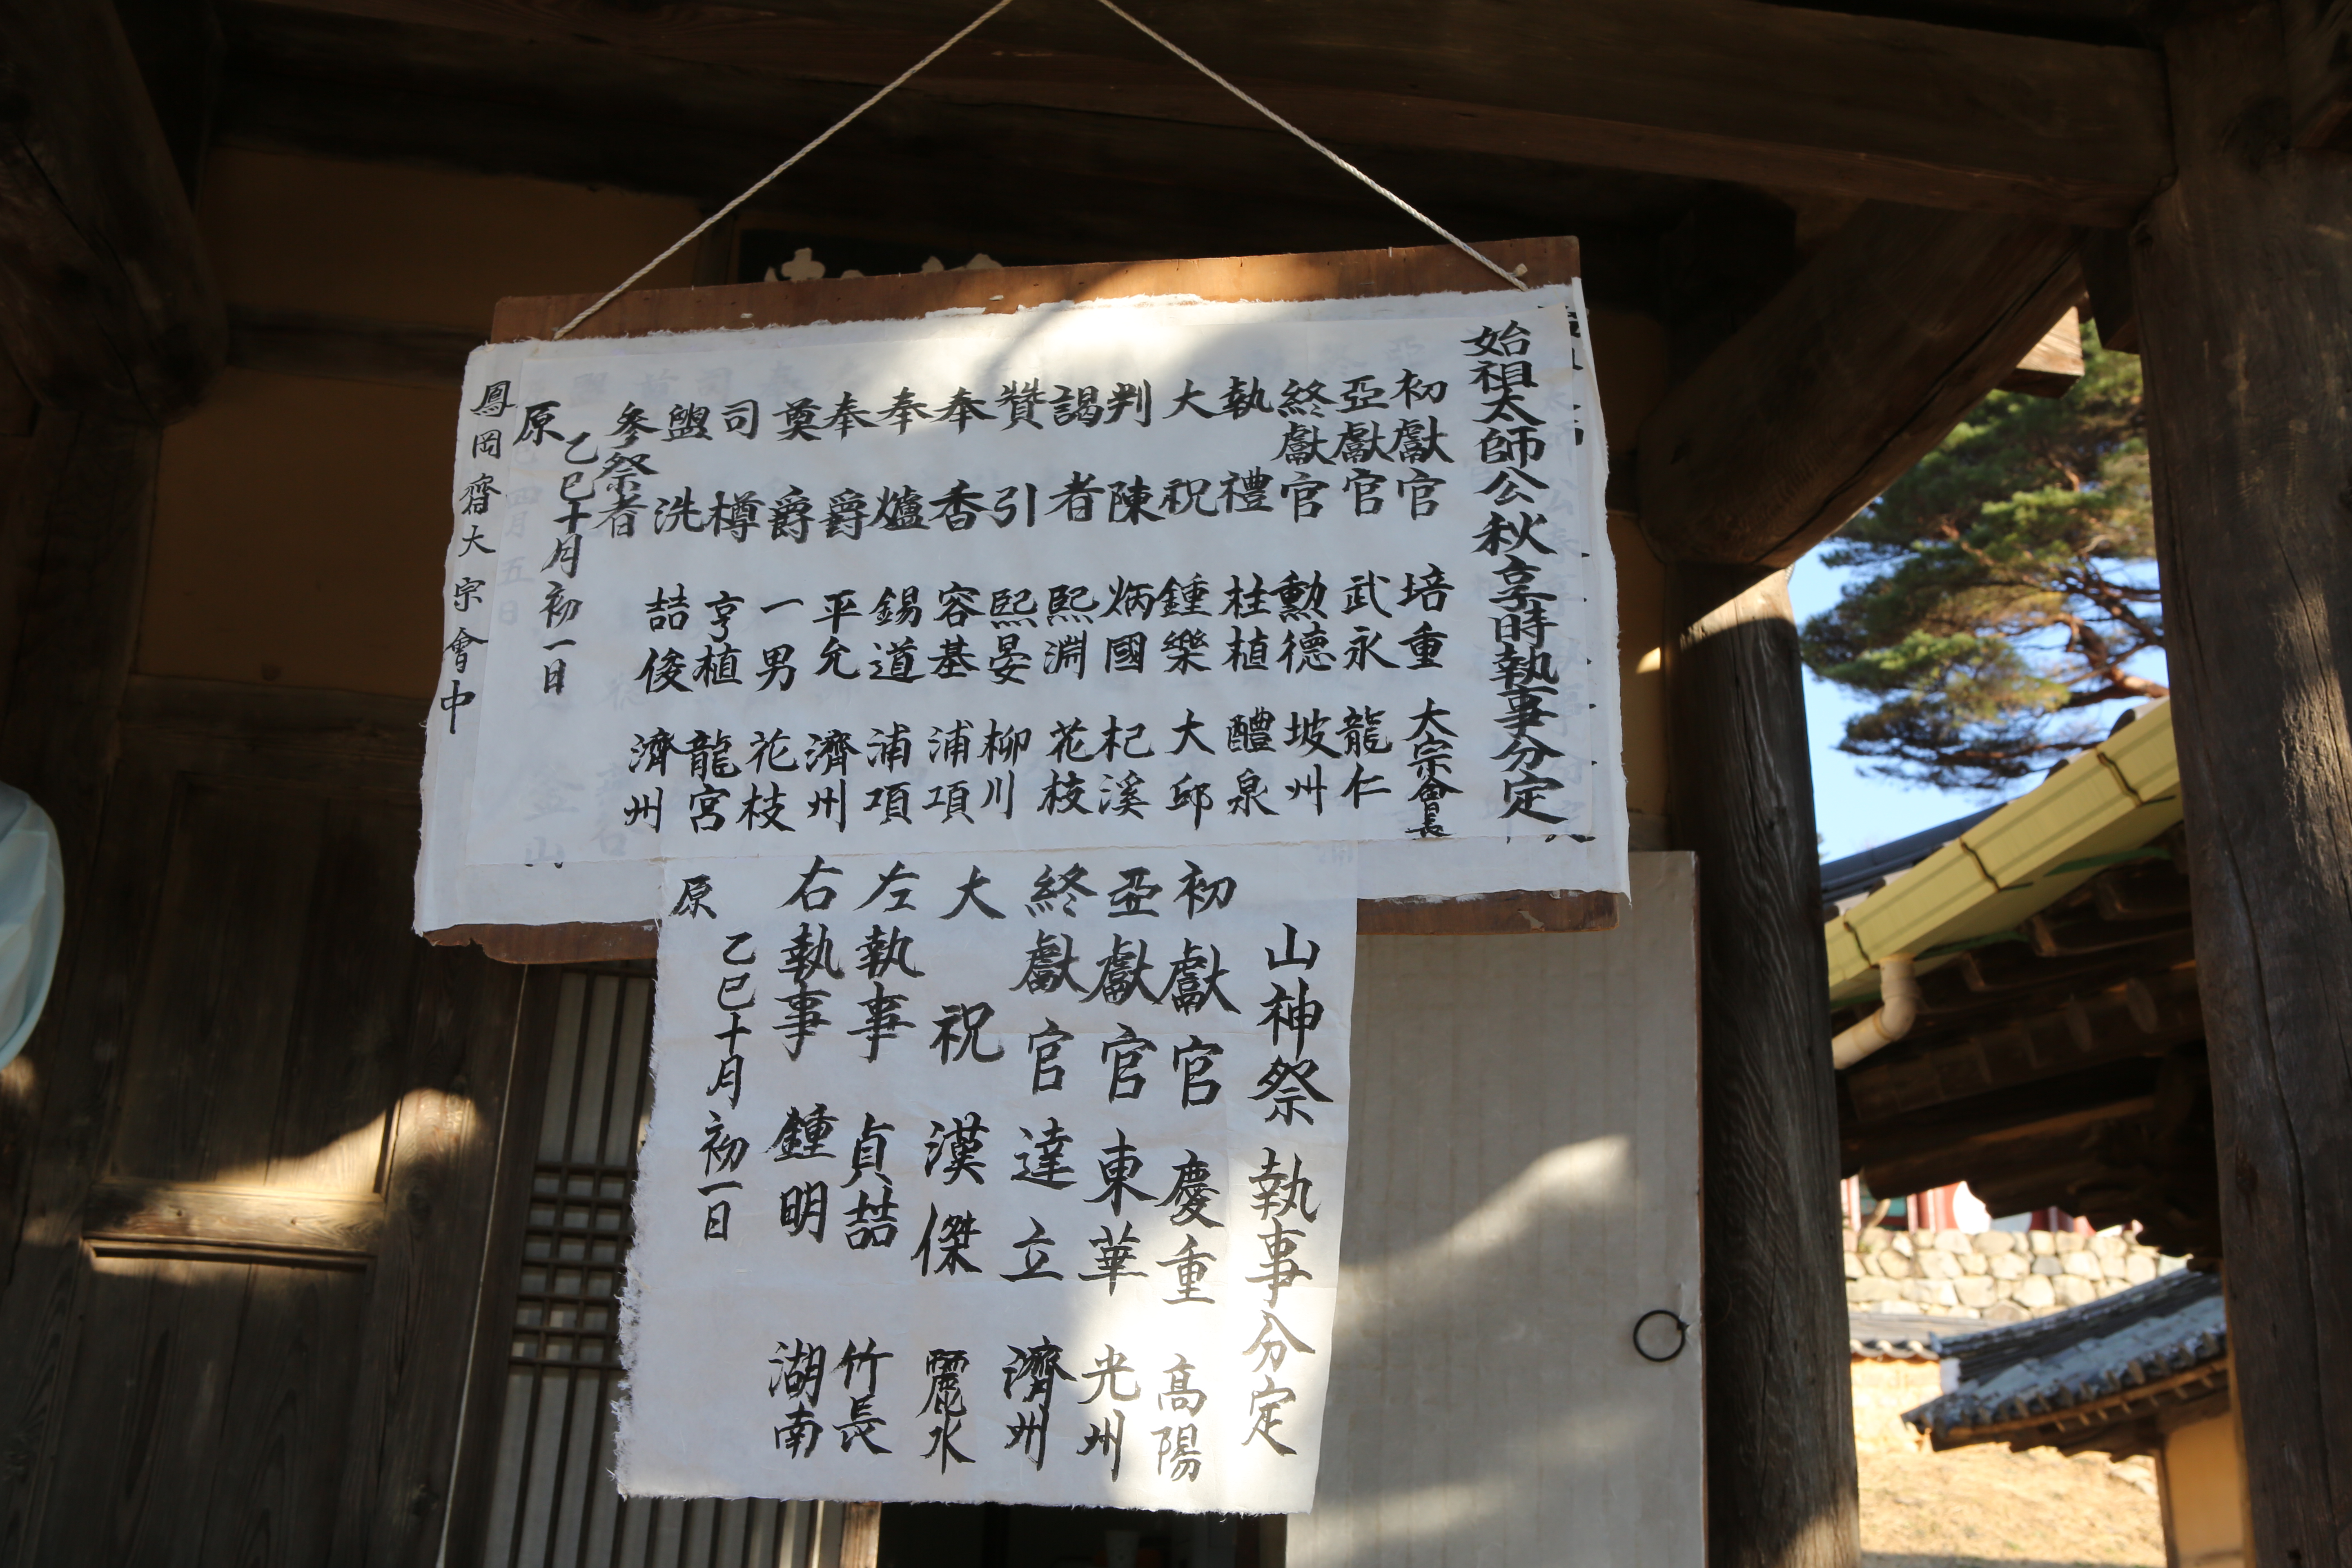 始祖太師公秋享時執事分定
初獻官 培重 大宗會長
亞獻官 武永 龍仁
終獻官 勳德 坡州
執禮 柱植 醴泉
大祝 鍾樂 大邱
判陳 炳國 杞溪
謁者 熙淵 花枝
贊引 熙晏 柳川
奉香 容基 浦項
奉爐 錫道 浦項
奉爵 平允 濟州
奠爵 一男 花枝
司樽 亨植 龍宮
盥洗 喆俊 濟州
參祭者
乙巳十月初一日
原
鳳岡齋大宗會中
山神祭執事分定
初獻官 慶重 高陽
亞獻官 東華 光州
終獻官 達立 濟州
大祝 漢傑 麗水
左執事 貞喆 竹長
右執事 鍾明 湖南
乙巳十月初一日
原